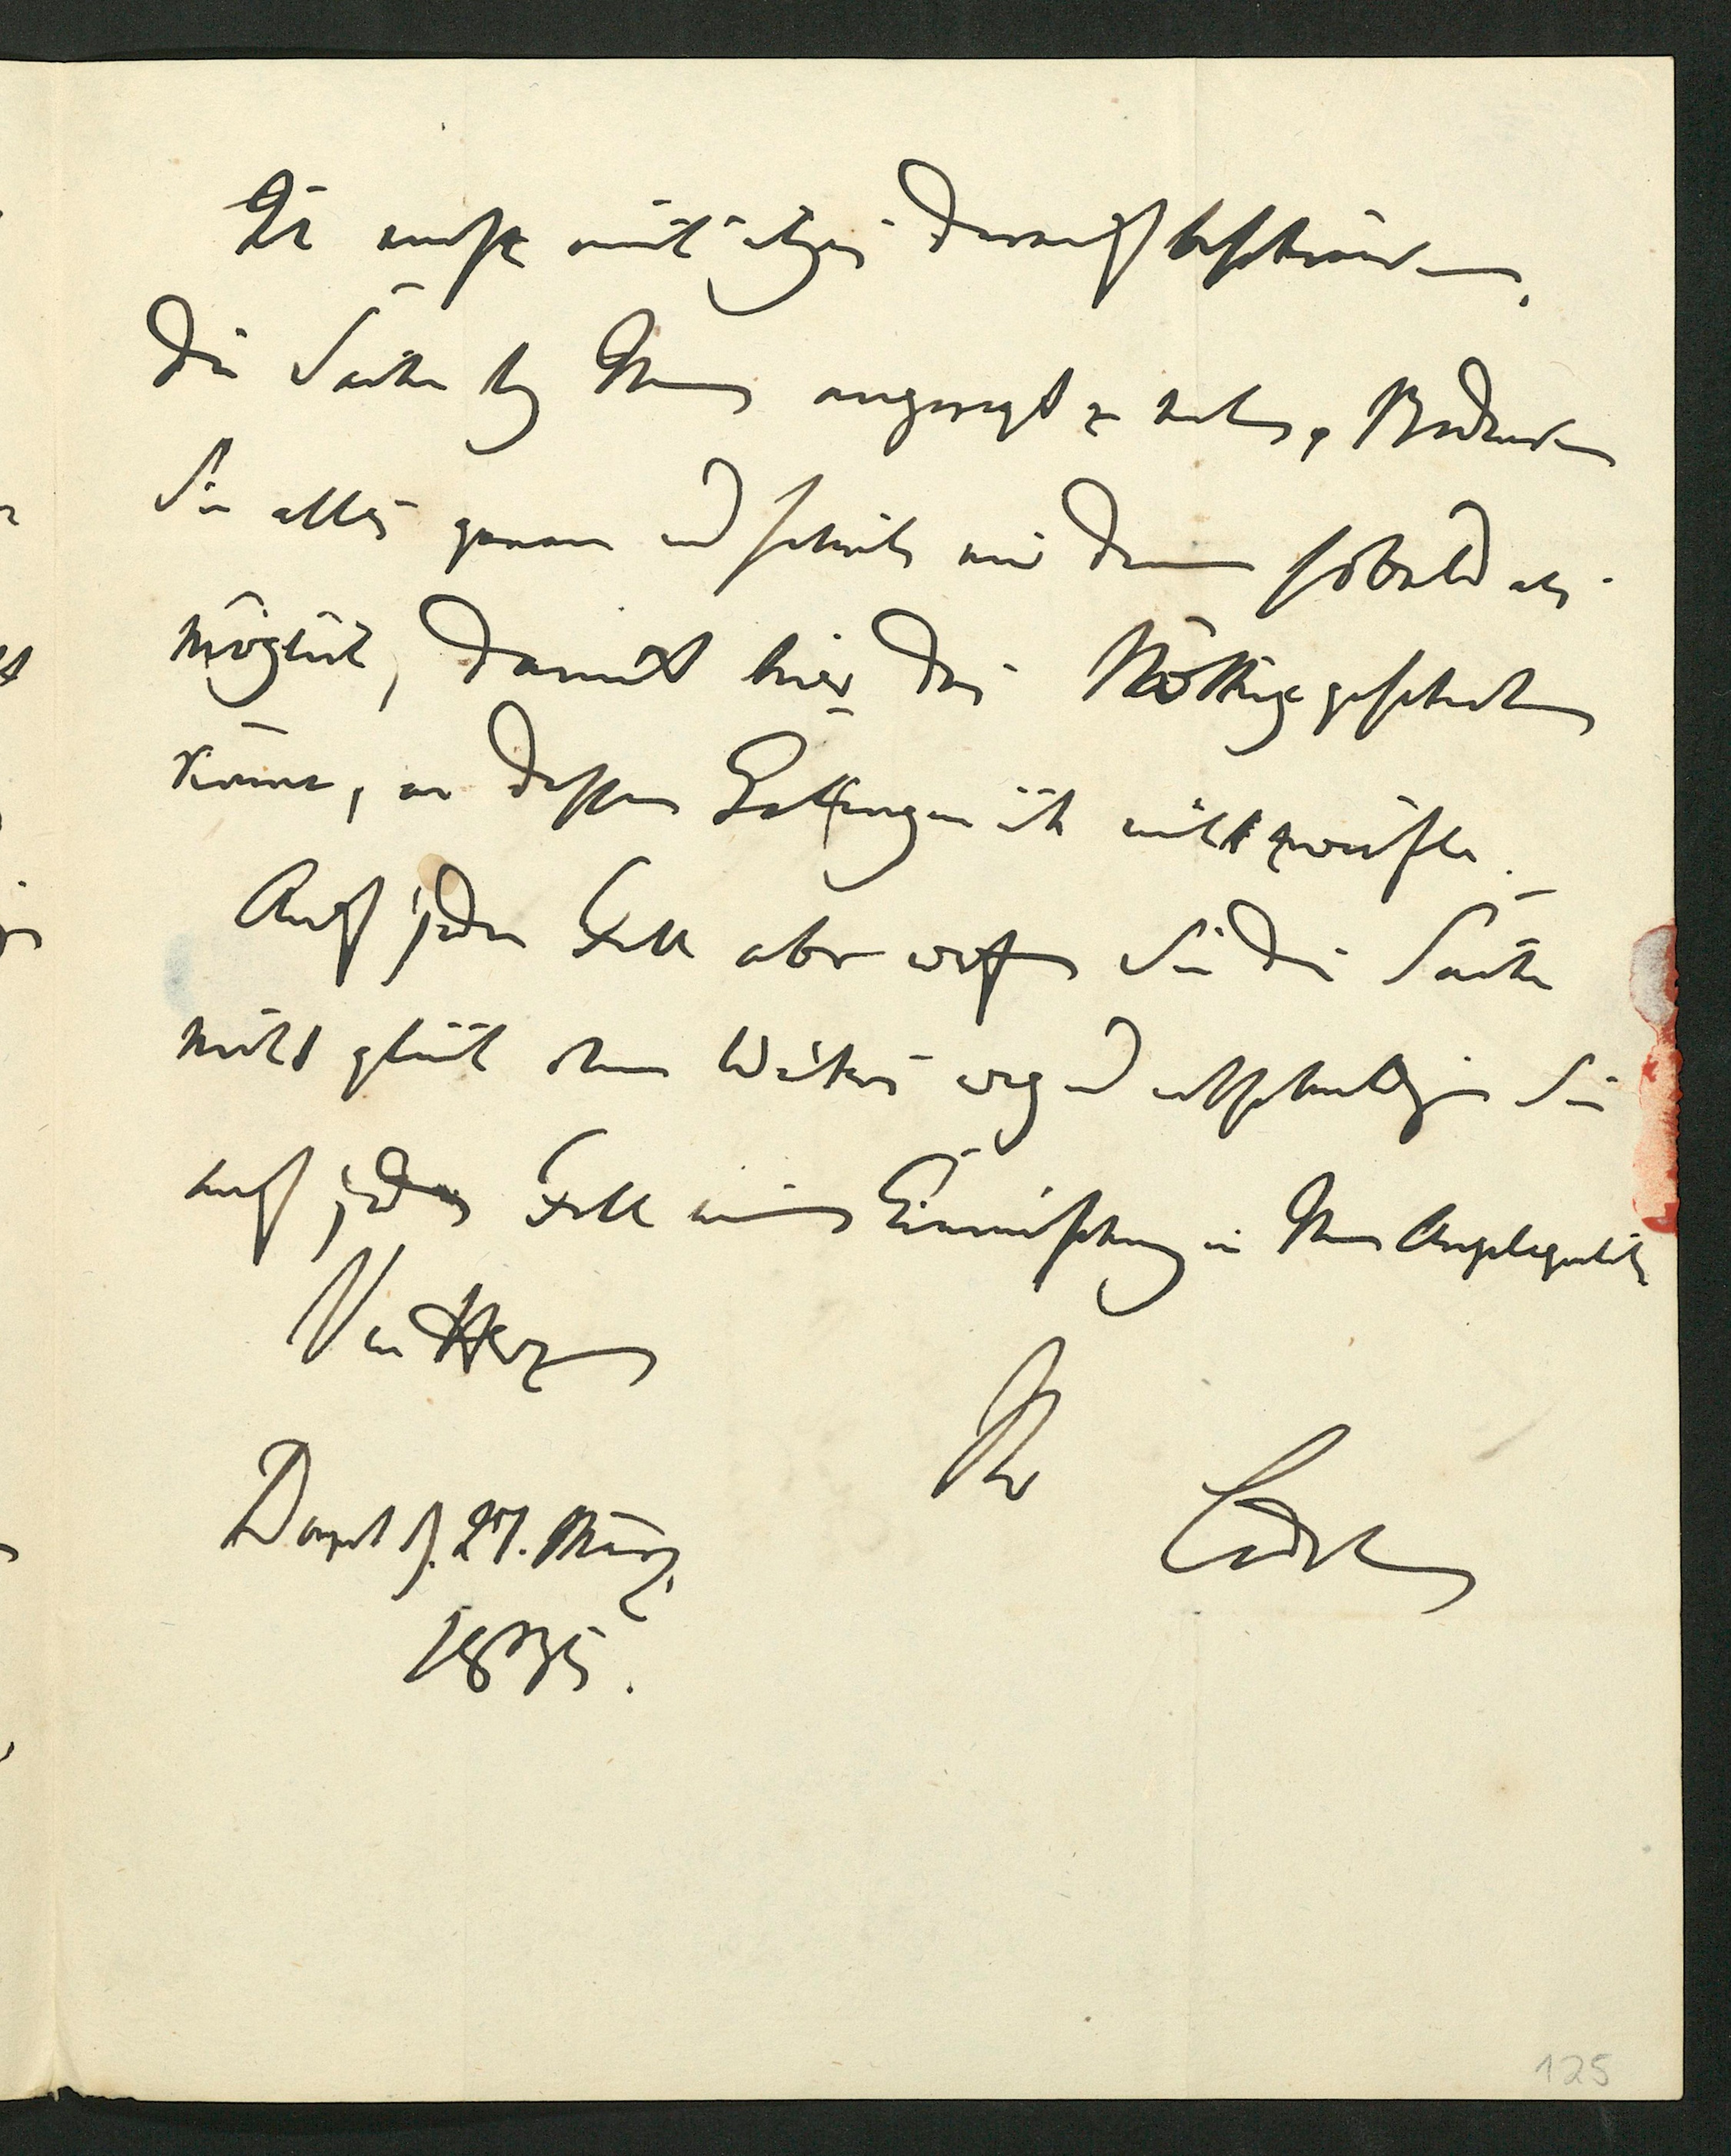 Ich muß mich itzo darauf beschränken,
die Sache bey Ihnen angeregt zu haben. Bedenken
Sie alles genau und schreiben mir dann sobald als
möglich, damit hier das Nöthige geschehen
könne, an dessen Gelingen ich nicht zweifle.
Auf jeden Fall aber werfen Sie die Sache
nicht gleich ohne Weiteres weg und entschuldigen Sie
auf jeden Fall meine Einmischung in Ihre Angelegenheiten
Von Herzen
Ihr
Dorpat d. 27. März
1835.
125